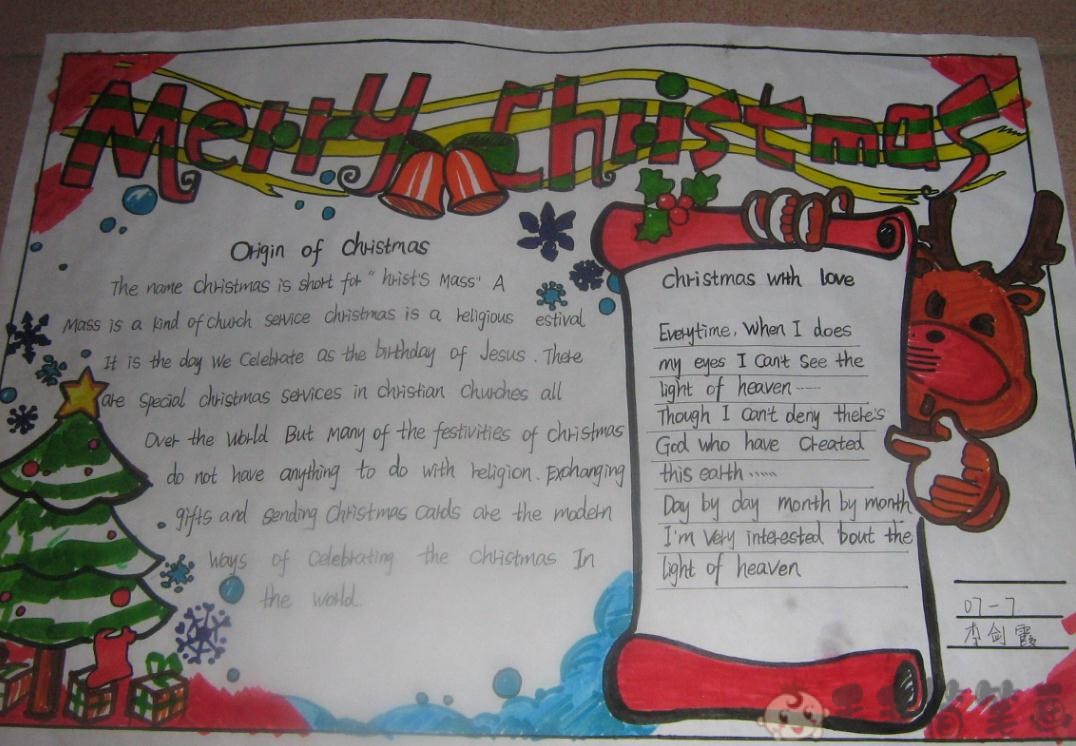 Merry Christmas
Origin of Christmas
The name Christmas is short for "hrist's Mass" A
Mass is a kind of church service christmas is a religious estival
It is the day we celebrate as the birthday of Jesus. There
are special christmas services in christian churches all
Over the world But many of the festivities of christmas
do not have anything to do with religion. Exchanging
gifts and sending Christmas cards are the modern
ways of celebrating the Christmas In
the world.
Christmas with love
Everytime, when I does
my eyes I can't see the
light of heaven ······
Though I can't deny there's
God who have created
this earth ······
Day by day month by month
I'm very interested bout the
light of heaven
07-7
李剑霞
简笔画